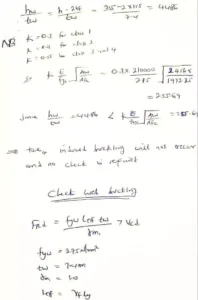 hw/tw = h-2tf/tw = 355-2x11.5/7.4 = 44.86
NB k = 0.3 for class 1
k = 0.4 for class 2
k = 0.55 for class 3 and 4
k E/fyf √Aw/Afc = 0.3 x 210000/275
= 255.69
Since hw/tw = 44.86 < k E/fyf √Aw/Afc = 255.69
⇒ induced buckling will not occur
and no check is required
Check web buckling
FRd = fyw Leff tw / γm > VEd
fyw = 275 N/mm²
tw = 7.4mm
γm = 1.0
Leff = χ ly